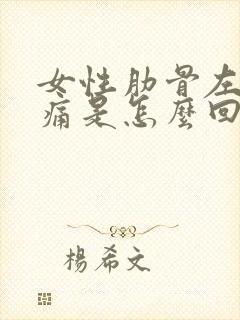 女性肋骨左
痛是怎麼回
楊希文